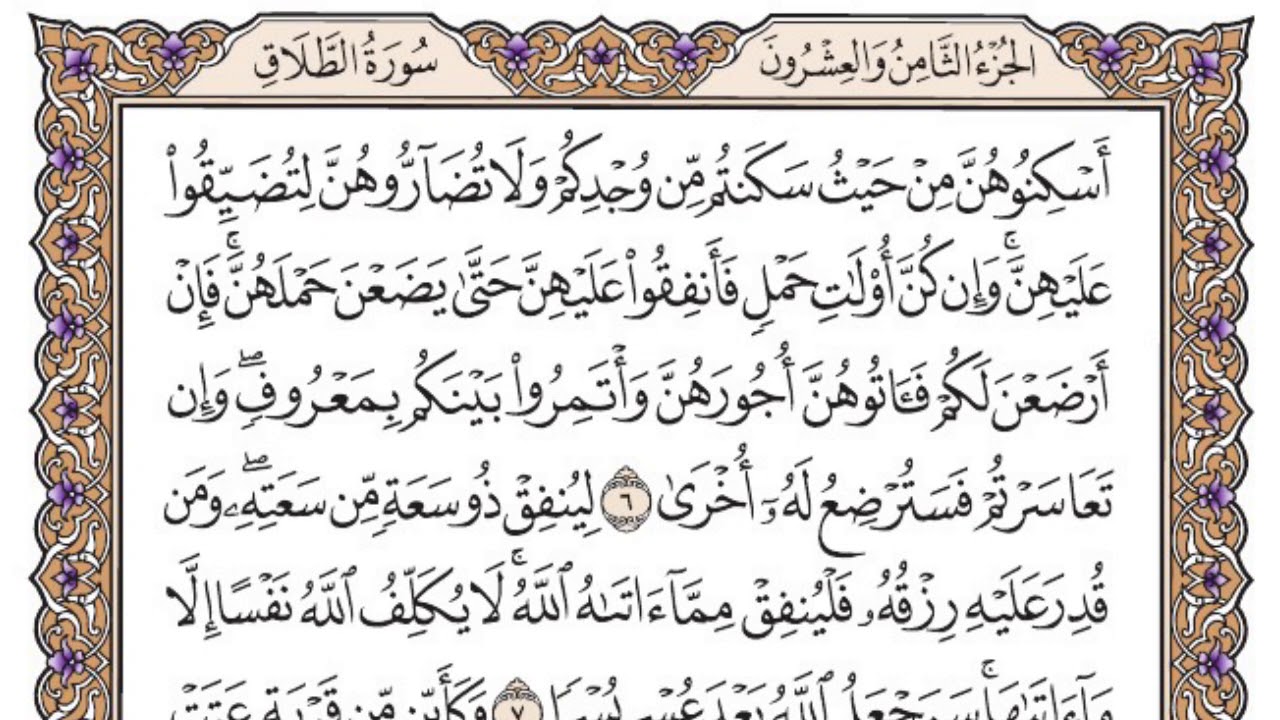 الجُزْءُ الثَّامِنُ وَالعِشْرُونَ
سُورَةُ الطَّلَاقِ
أَسْكِنُوهُنَّ مِنْ حَيْثُ سَكَنتُم مِّن وُجْدِكُمْ وَلَا تُضَآرُّوهُنَّ لِتُضَيِّقُوا۟
عَلَيْهِنَّ ۚ وَإِن كُنَّ أُو۟لَٰتِ حَمْلٍ فَأَنفِقُوا۟ عَلَيْهِنَّ حَتَّىٰ يَضَعْنَ حَمْلَهُنَّ ۚ فَإِنْ
أَرْضَعْنَ لَكُمْ فَـَٔاتُوهُنَّ أُجُورَهُنَّ وَأْتَمِرُوا۟ بَيْنَكُم بِمَعْرُوفٍ ۖ وَإِن
تَعَاسَرْتُمْ فَسَتُرْضِعُ لَهُۥٓ أُخْرَىٰ ٦ لِيُنفِقْ ذُو سَعَةٍ مِّن سَعَتِهِۦ ۖ وَمَن
قُدِرَ عَلَيْهِ رِزْقُهُۥ فَلْيُنفِقْ مِمَّآ ءَاتَىٰهُ ٱللَّهُ ۚ لَا يُكَلِّفُ ٱللَّهُ نَفْسًا إِلَّا
مَآ ءَاتَىٰهَا ۚ سَيَجْعَلُ ٱللَّهُ بَعْدَ عُسْرٍ يُسْرًا ٧ وَكَأَيِّن مِّن قَرْيَةٍ عَتَتْ